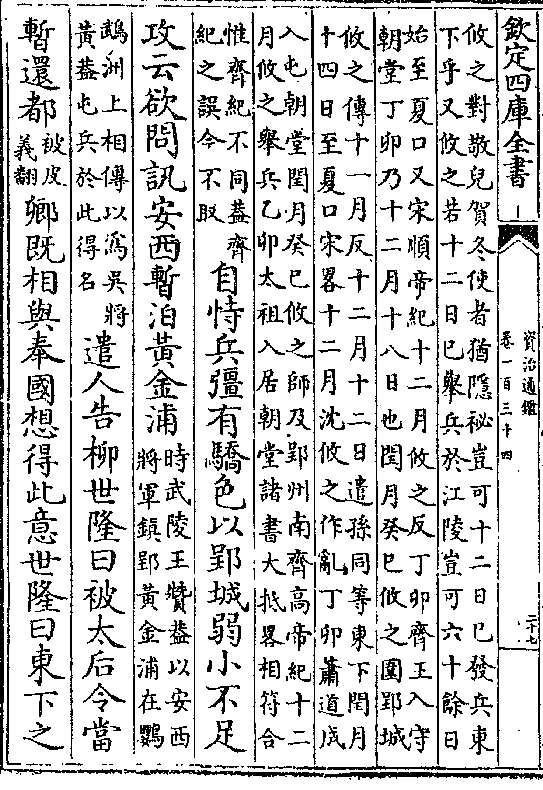 欽定四庫全書
資治通鑑
卷一百三十四
二十七
攸之對敬兒賀冬使者猶隱祕豈可十二日已發兵東
下乎又攸之若十二日已舉兵於江陵豈可六十餘日
始至夏口又宋順帝紀十二月攸之反丁卯齊王入守
朝堂丁卯乃十二月十八日也閏月癸巳攸之圍郢城
攸之傳十一月反十二月十二日遣孫同等東下閏月
十四日至夏口宋畧十二月沈攸之作亂丁卯蕭道成
入屯朝堂閏月癸巳攸之師及郢州南齊高帝紀十二
月攸之舉兵乙卯太祖入居朝堂諸書大抵畧相符合
惟齊紀不同葢齊
紀之誤今不取
自恃兵彊有驕色以郢城弱小不足
攻云欲問訊安西暫泊黃金浦
時武陵王贊葢以安西
將軍鎮郢黃金浦在鸚
鵡洲上相傳以爲吳將
黃葢屯兵於此得名
遣人告柳世隆曰被太后令當
暫還都
被皮
義翻
卿既相與奉國想得此意世隆曰東下之